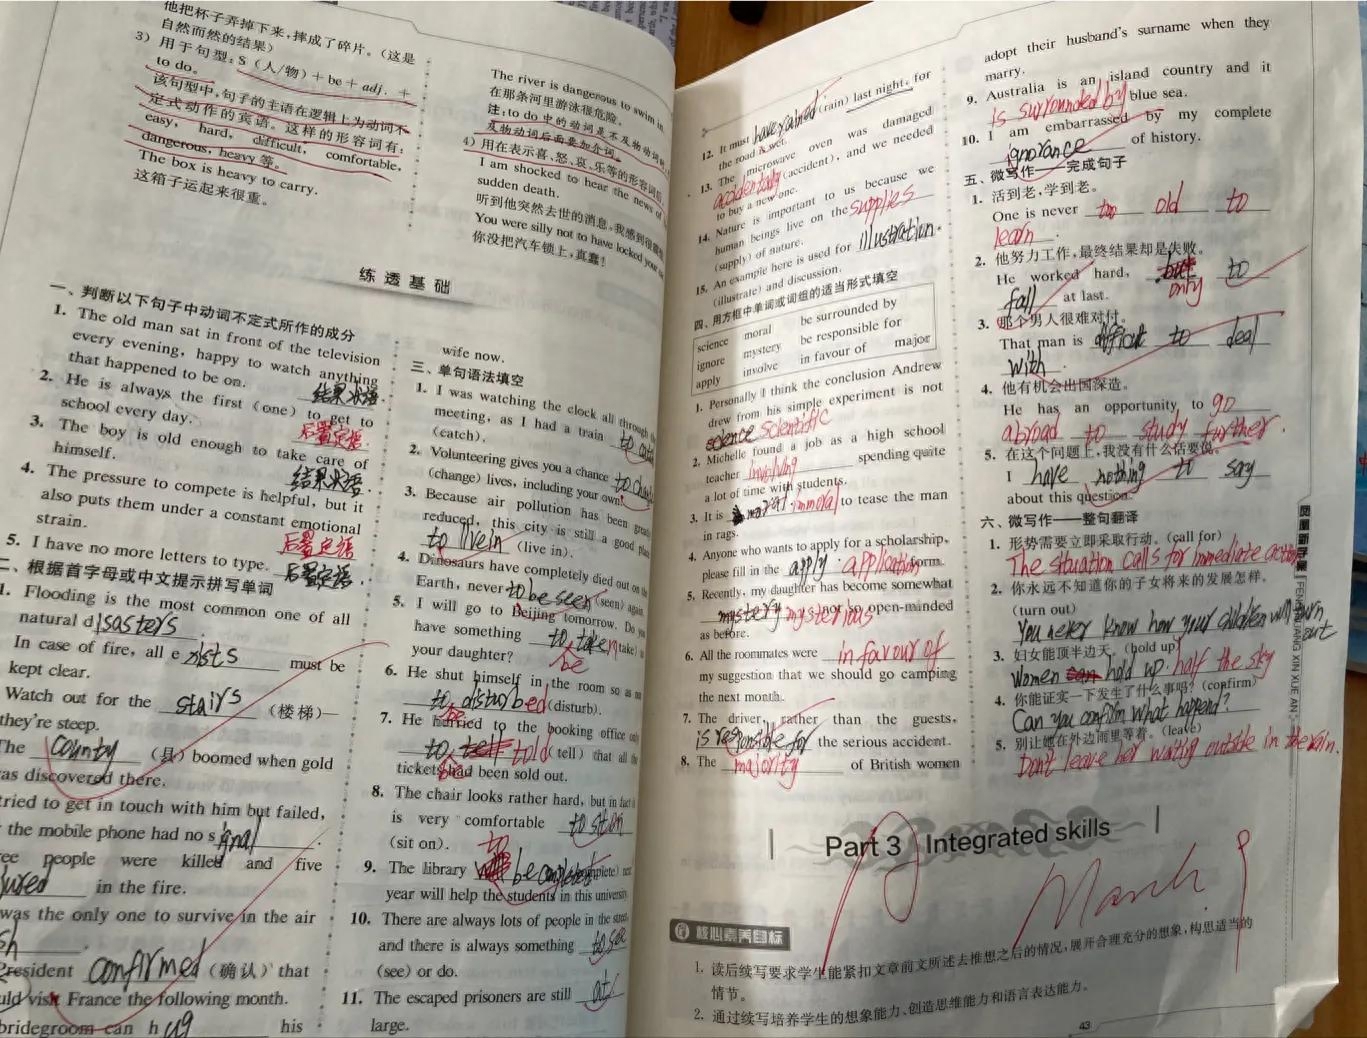 他把杯子弄掉下来,摔成了碎片。(这是
自然而然的结果)
3) 用于句型:S(人/物)+be+adj. +
to do。
该句型中,句子的主语在逻辑上为动词不
定式动作的宾语。这样的形容词有:
easy, hard, difficult, comfortable,
dangerous, heavy 等。
The box is heavy to carry.
这箱子运起来很重。
The river is dangerous to swim in.
在那条河里游泳很危险。
注:to do 中的动词是不及物动词时
及物动词后面要加介词。
4) 用在表示喜、怒、哀、乐等的形容词后
I am shocked to hear the news of
sudden death.
听到他突然去世的消息,我感到很震惊
You were silly not to have locked your
你没把汽车锁上,真蠢!
练透基础
一、判断以下句子中动词不定式所作的成分
1. The old man sat in front of the television
every evening, happy to watch anything
that happened to be on. 结果状语.
2. He is always the first (one) to get to
school every day. 后置定语.
3. The boy is old enough to take care of
himself. 结果状语.
4. The pressure to compete is helpful, but it
also puts them under a constant emotional
strain. 后置定语
5. I have no more letters to type. 后置定语.
二、根据首字母或中文提示拼写单词
1. Flooding is the most common one of all
natural disasters.
In case of fire, all exists must be
kept clear.
Watch out for the stairs (楼梯)—
they're steep.
The county (县) boomed when gold
was discovered there.
tried to get in touch with him but failed,
the mobile phone had no signal
people were killed and five
in the fire.
was the only one to survive in the air
President confirmed (确认) that
visit France the following month.
bridegroom can hug his
wife now.
三、单句语法填空
1. I was watching the clock all through the
meeting, as I had a train to catch
(catch).
2. Volunteering gives you a chance to change
(change) lives, including your own.
3. Because air pollution has been greatly
reduced, this city is still a good place
to live in (live in).
4. Dinosaurs have completely died out on the
Earth, never to be seen (seen) again.
5. I will go to Beijing tomorrow. Do you
have something to be taken (take) to
your daughter?
6. He shut himself in the room so as not
to be disturbed (disturb).
7. He hurried to the booking office only
to be told (tell) that all the
tickets had been sold out.
8. The chair looks rather hard, but in fact it
is very comfortable to sit on
(sit on).
9. The library to be completed (complete) next
year will help the students in this university.
10. There are always lots of people in the street
and there is always something to see
(see) or do.
11. The escaped prisoners are still at
large.
12. It must have rained (rain) last night, for
the road is wet.
13. The microwave oven was damaged
accidentally (accident), and we needed
to buy a new one.
14. Nature is important to us because we
human beings live on the supplies
(supply) of nature.
15. An example here is used for illustration.
(illustrate) and discussion.
四、用方框中单词或词组的适当形式填空
science moral be surrounded by
ignore mystery be responsible for
apply involve in favour of major
1. Personally I think the conclusion Andrew
drew from his simple experiment is not
science scientific
2. Michelle found a job as a high school
teacher involving spending quite
a lot of time with students.
3. It is immoral to tease the man
in rags.
4. Anyone who wants to apply for a scholarship,
please fill in the apply. application form.
5. Recently, my daughter has become somewhat
mystery mysterious nor so open-minded
as before.
6. All the roommates were in favour of
my suggestion that we should go camping
the next month.
7. The driver, rather than the guests,
is responsible for the serious accident.
8. The majority of British women
adopt their husband's surname when they
marry.
9. Australia is an island country and it
is surrounded by blue sea.
10. I am embarrassed by my complete
ignorance of history.
五、微写作——完成句子
1. 活到老,学到老。
One is never too old to
learn.
2. 他努力工作,最终结果却是失败。
He worked hard, but only to
fall at last.
3. 那个男人很难对付。
That man is difficult to deal
with.
4. 他有机会出国深造。
He has an opportunity to go
abroad to study further.
5. 在这个问题上,我没有什么话要说。
I have nothing to say
about this question.
六、微写作——整句翻译
1. 形势需要立即采取行动。(call for)
The situation calls for immediate action
2. 你永远不知道你的子女将来的发展怎样。
(turn out)
You never know how your children will turn
out
3. 妇女能顶半边天。(hold up)
Women can hold up half the sky
4. 你能证实一下发生了什么事吗?(confirm)
Can you confirm what happend?
5. 别让她在外边雨里等着。(leave)
Don't leave her waiting outside in the rain.
Part 3 Integrated skills
March. 9
核心素养目标
1. 读后续写要求学生能紧扣文章前文所述去推想之后的情况,展开合理充分的想象,构思适当的
情节。
2. 通过续写培养学生的想象能力、创造思维能力和语言表达能力。
43
凤凰新学案
FENG HUANG XIN XUE AN